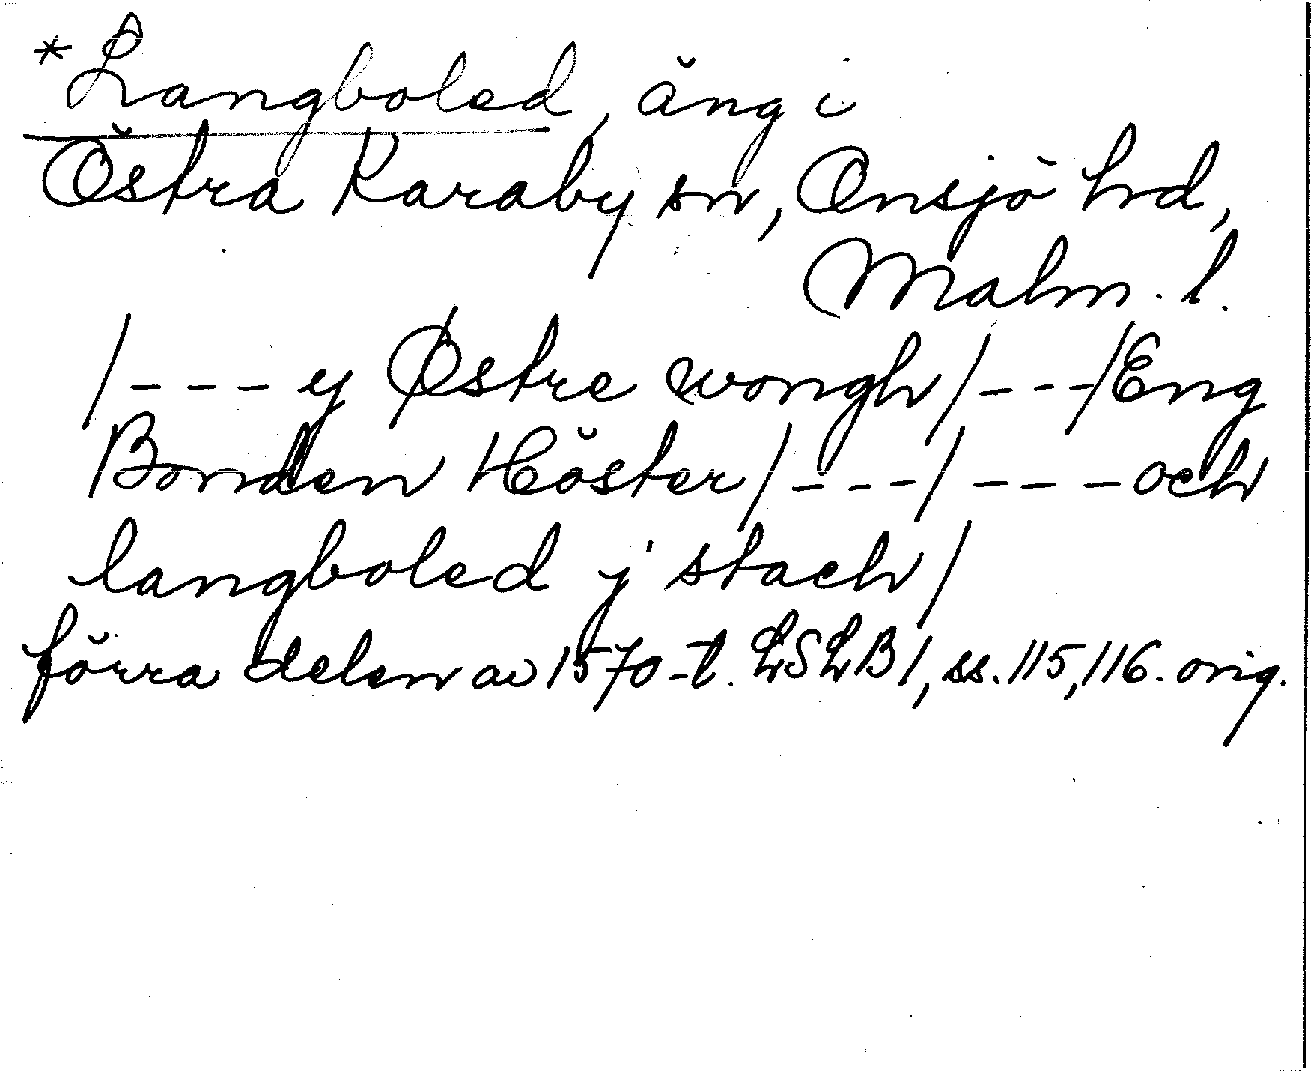 *Langboled, äng i
Östra Karaby sn, Onsjö hd,
Malm. l.
/--- y Østre wongh/---/Eng
Bonden Höster/---/ --- och
langboled j stach/
förra delen av 1570-t. LSLB 1, ss. 115, 116. orig.